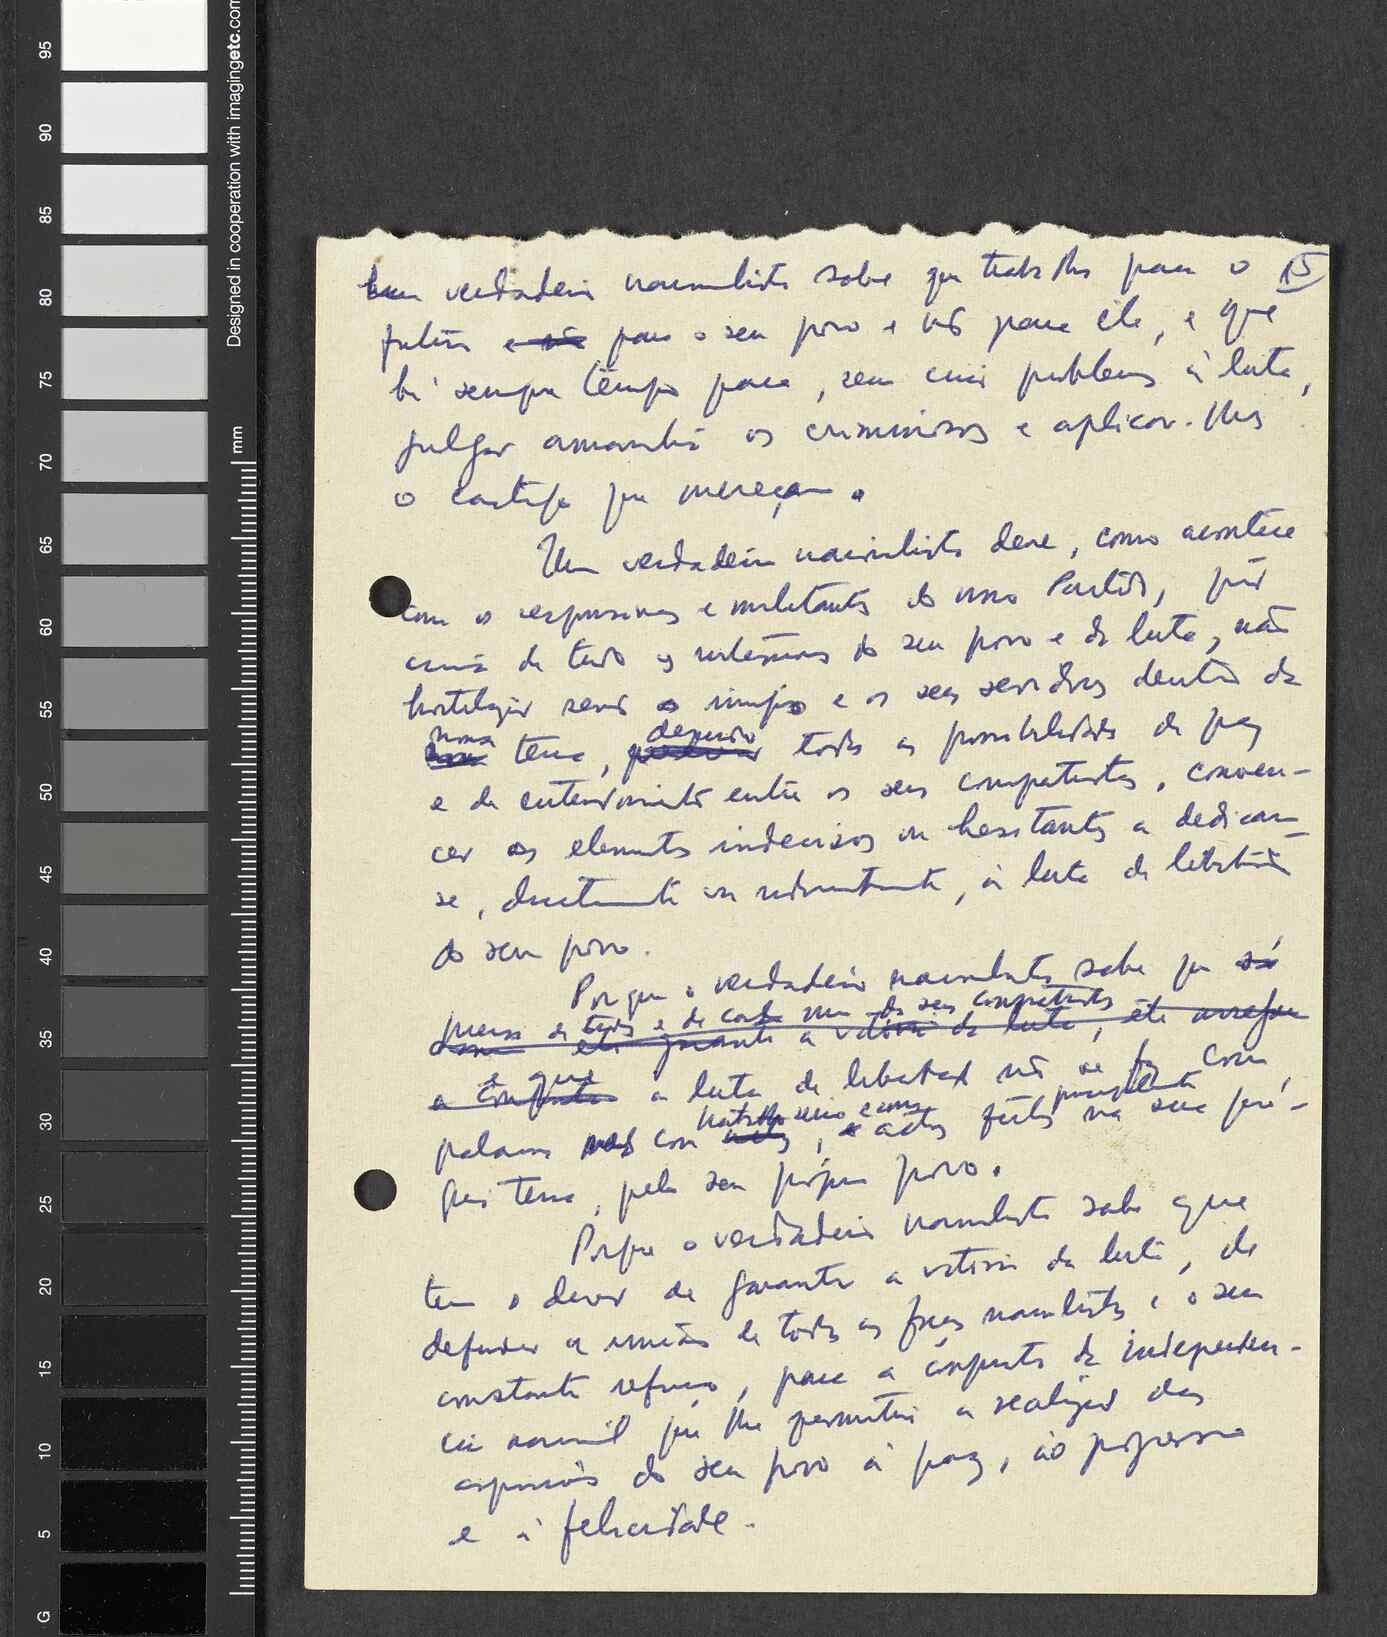 95
90
85
80
75
70
65
60
55
50
45
40
35
30
25
20
15
10
5
G
Designed in cooperation with imagingetc.com
mm
15
Um verdadeiro nacionalista sabe que trabalha para o
futuro e não para o seu povo e não para êle, e que
há sempre tempo para, sem criar problemas à luta,
julgar amanhã os criminosos e aplicar-lhes
o castigo que mereçam.
Um verdadeiro nacionalista deve, como acontece
com os responsáveis e militantes do nosso Partido, pôr
acima de tudo os interêsses do seu povo e da luta, não
hostilizar senão o inimigo e os seus servidores dentro da
nossa
terra, todas as possibilidades de paz
e de entendimento entre os seus compatriotas, conven-
cer os elementos indecisos ou hesitantes a dedicar-
se, directamente ou indirectamente, à luta de libertação
do seu povo.
Porque o verdadeiro nacionalista sabe que só
de todos e de cada um dos seus compatriotas
êle garante a vitória da luta, êle
e que
a conquista a luta de libertação não se faz com
principalmente
trabalho sério e com
palavras mas com actos, e actos feitos na sua pró-
pria terra, pelo seu próprio povo.
Porque o verdadeiro nacionalista sabe que
tem o dever de garantir a vitória da luta, de
defender a união de todas as fôrças nacionalistas e o seu
constante refôrço, para a conquista da independên-
cia nacional que lhe permitirá a realização das
aspirações do seu povo à paz, ao progresso
e à felicidade.